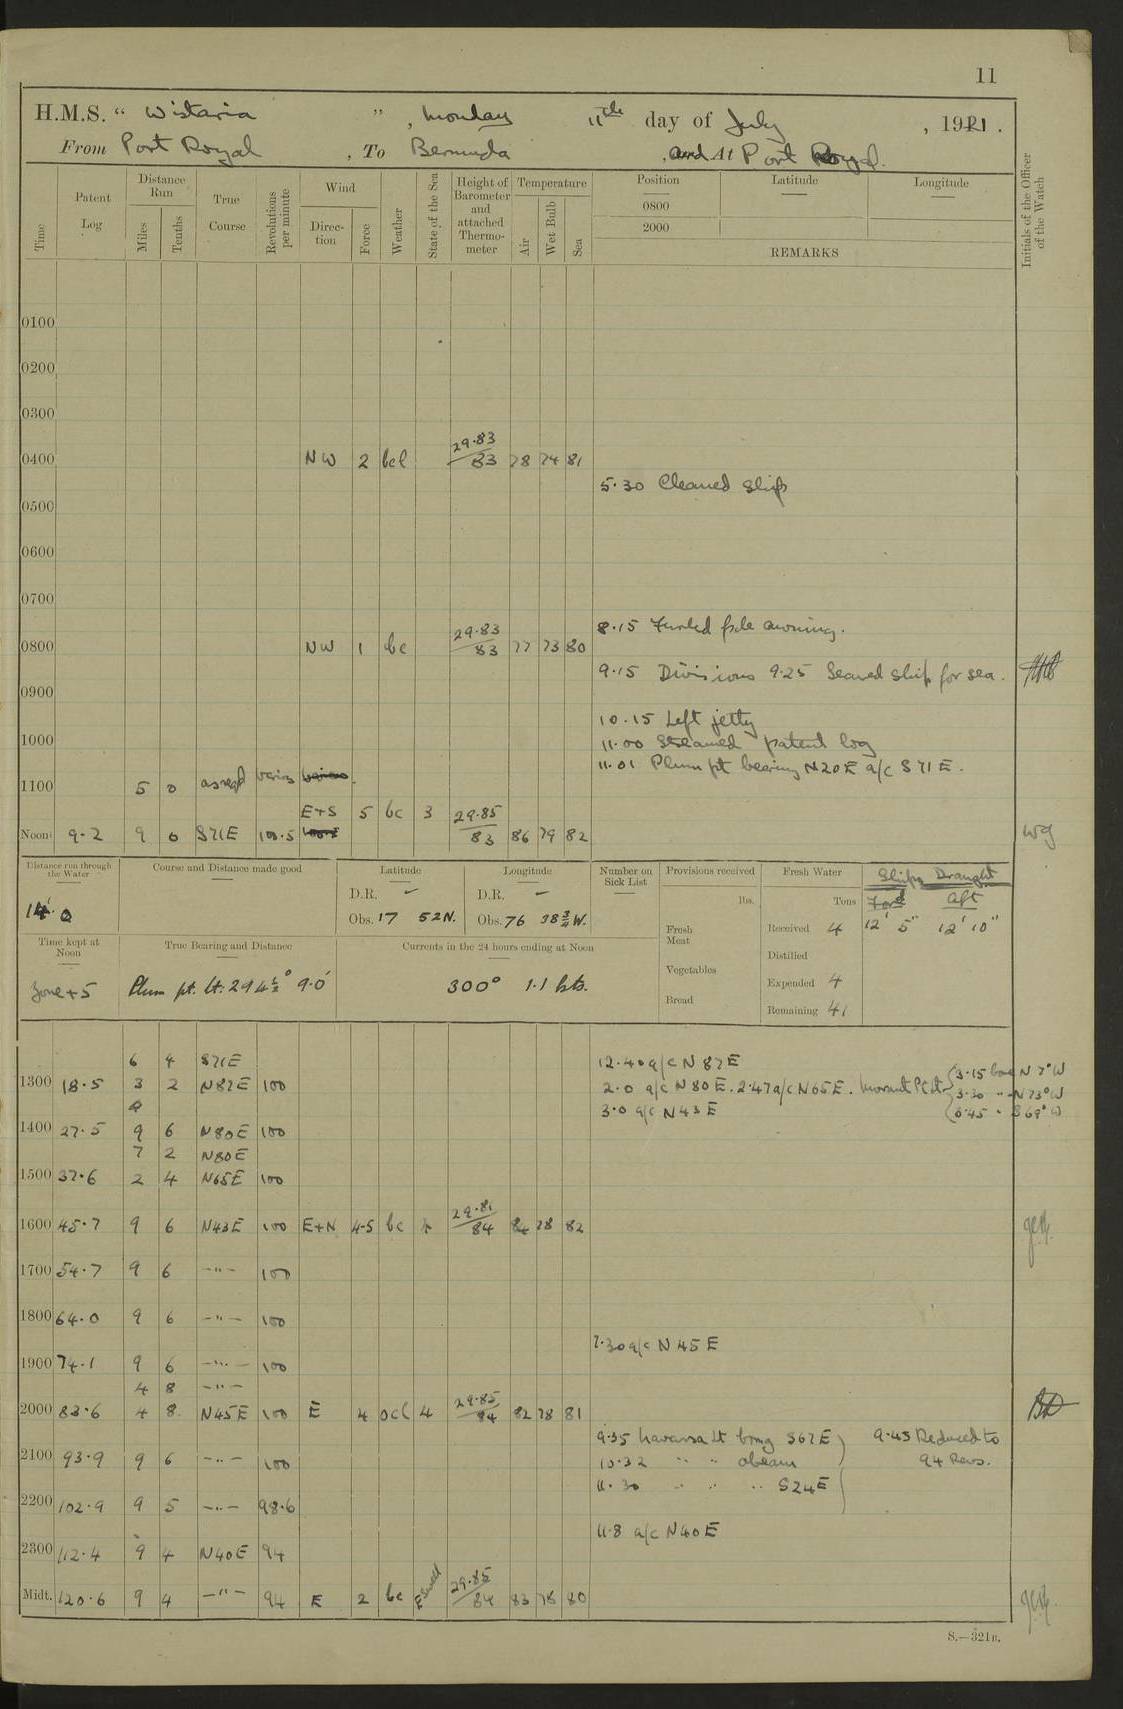 11
H.M.S. “ Wistaria ” , Monday 11th day of July , 1921 .
From Port Royal , To Bermuda , and At Port Royal.
Time Patent Log Distance Run Miles Tenths True Course Revolutions per minute Wind Direction Force Weather State of the Sea Height of Barometer and attached Thermometer Temperature Air Wet Bulb Sea Position Latitude Longitude Initials of the Officer of the Watch
0800
2000
REMARKS
0100
0200
0300
0400 NW 2 bcl 29.83 / 83 78 74 81
5.30 Cleaned Ship
0500
0600
0700
8.15 Furled awning.
0800 NW 1 bc 29.83 / 83 77 73 80
9.15 Divisions 9.25 Secured Ship for sea.
0900
10.15 Left jetty
1000 11.00 Streamed patent log
11.01 Plum pt bearing N20E a/c S71E.
1100 5 0 as reqd various
E+S 5 bc 3 29.85
Noon 9.2 9 0 S71E 100.5 83 86 79 82 WG
Distance run through the Water 14.0
Course and Distance made good
Latitude D.R. – Obs. 17 52N.
Longitude D.R. – Obs. 76 38¾W.
Number on Sick List
Provisions received lbs. Fresh Meat Vegetables Bread
Fresh Water Tons Received 4 Distilled Expended 4 Remaining 41
Ships Draught Ford Aft
12' 5" 12' 10"
Time kept at Noon Zone +5
True Bearing and Distance Plum pt. lt. 294½° 9.0'
Currents in the 24 hours ending at Noon 300° 1.1 kts.
6 4 S71E 12.40 a/c N87E
1300 18.5 3 2 N87E 100 2.0 a/c N80E. 2.47 a/c N65E. Morant Pt lt 3.15 bore N7°W
3.30 " N73°W
3.0 a/c N43E 3.45 " S69°W
1400 27.5 9 6 N80E 100
7 2 N80E
1500 37.6 2 4 N65E 100
1600 45.7 9 6 N43E 100 E+N 4-5 bc 4 29.81 / 84 84 78 82
1700 54.7 9 6 –"– 100
1800 64.0 9 6 –"– 100
7.30 a/c N45E
1900 74.1 9 6 –"– 100
4 8 –"–
2000 83.6 4 8 N45E 100 E 4 ocl 4 29.85 / 84 82 78 81
9.35 Navassa lt brng S67E 9.45 Reduced to
2100 93.9 9 6 –"– 100 10.32 " " abeam 94 Revs.
11.30 " " " S24E
2200 102.9 9 5 –"– 98.6
11.8 a/c N40E
2300 112.4 9 4 N40E 94
Midt. 120.6 9 4 –"– 94 E 2 bc E Swell 29.85 / 84 83 78 80
S.—321B.